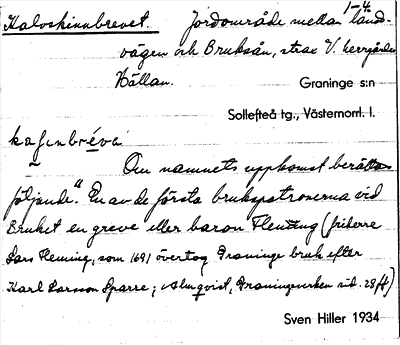 1-4.
Kalvskinnbrevet. Jordområde mellan land-
vägen och Bruksån, strax V. herrgården
Hållan.
Graninge s:n
Sollefteå tg., Västernorrl. l.
Om namnets uppkomst berättas
följande: "En av de första brukspatronerna vid
Bruket en greve eller baron Fleming (friherre
Lars Fleming, som 1691 övertog Graninge bruk efter
Karl Larsson Sparre; Almqvist, Graningeverken sid. 28 ff)
Sven Hiller 1934